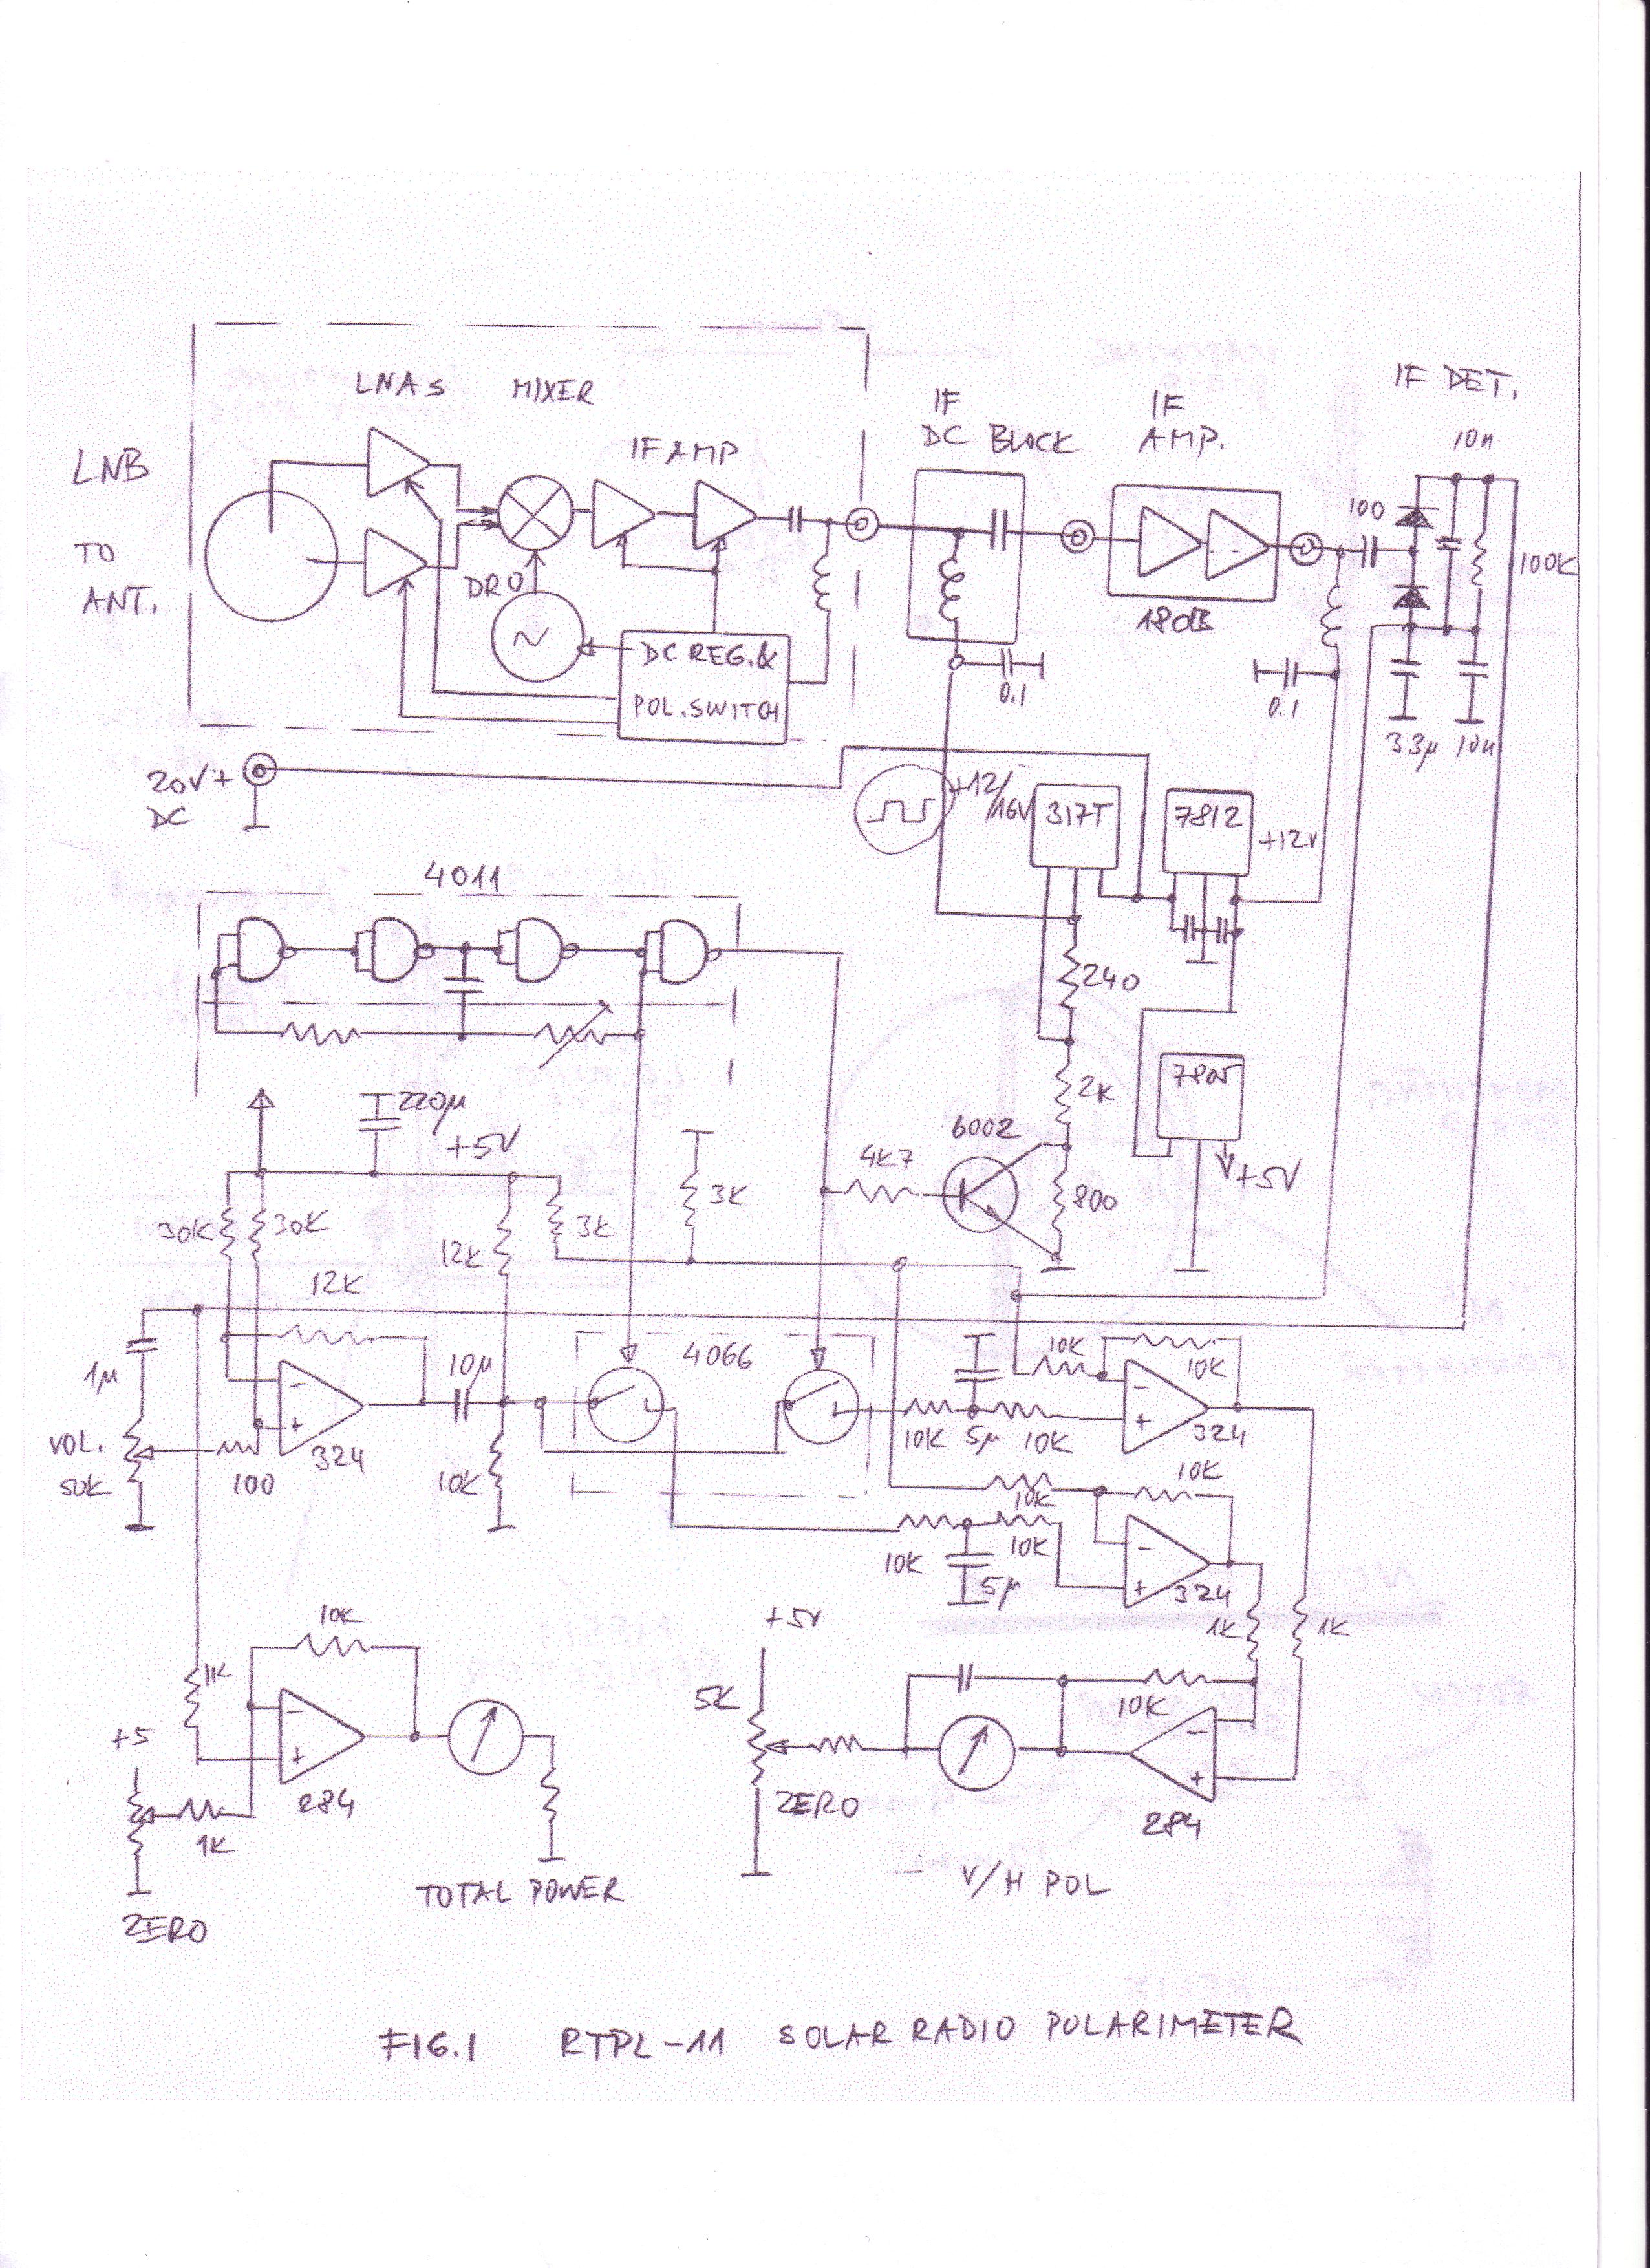 LNAs MIXER
IF DET.
IF
DC BLOCK
IF
AMP.
10n
IF AMP
LNB
TO
ANT.
100
100K
DRO
18dB
DC REG.&
POL.SWITCH
0.1
0.1
33µ 10n
20V+
DC
+12/
16V
317T
7812
+12V
4011
240
220µ
+5V
2K
7805
6002
4K7
+5V
3K
800
30K
30K
12K
3K
12K
4066
10K
10K
10µ
1µ
324
VOL.
50K
100
10K
10K
5µ
10K
324
10K
10K
10K
10K
5µ
324
+5V
1K
1K
10K
1K
5K
10K
+5
284
1K
ZERO
284
TOTAL POWER
V/H POL
ZERO
FIG.1 RTPL-11 SOLAR RADIO POLARIMETER